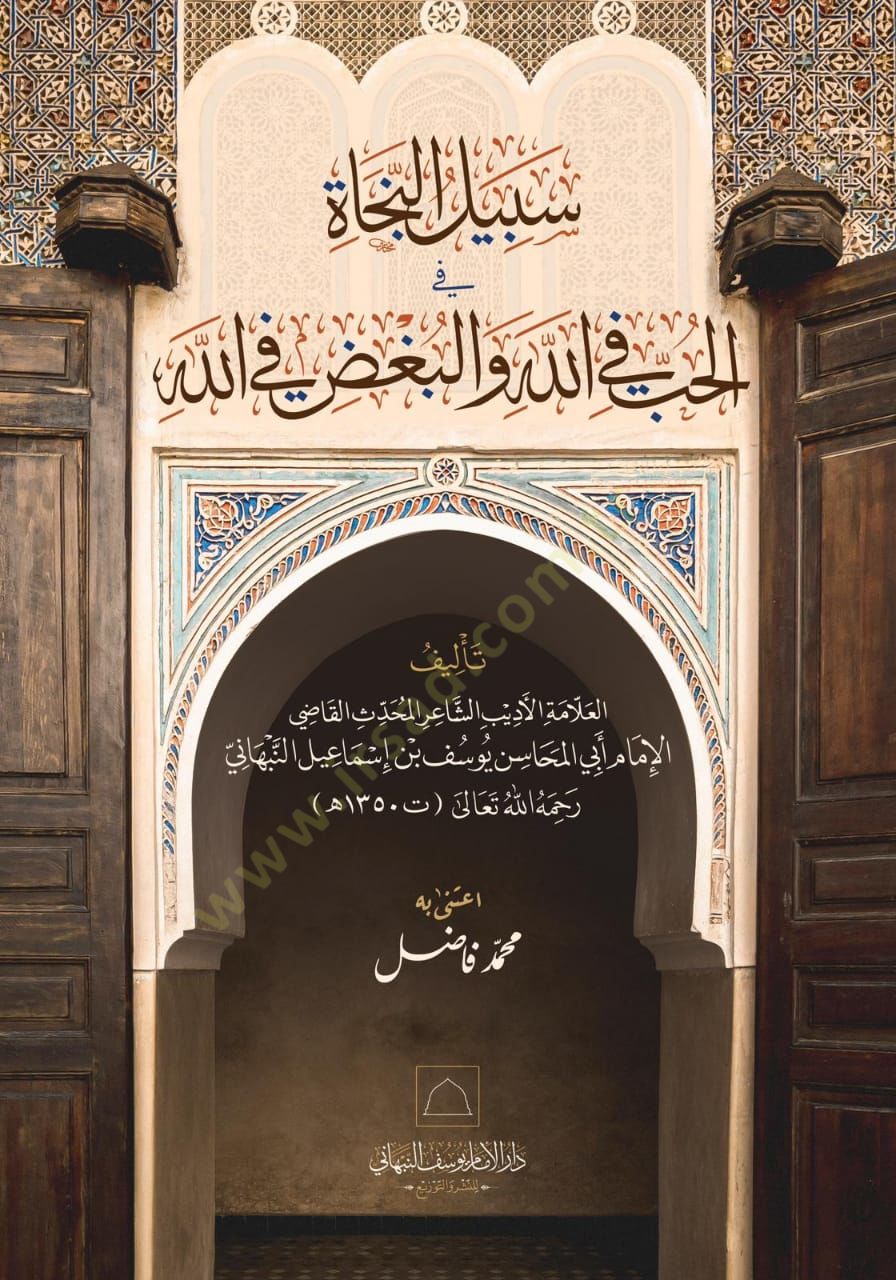 سَبِيلُ النَّجَاةِ
فِي
الحُبِّ فِي اللَّهِ وَالبُغْضِ فِي اللَّهِ
تَأْلِيفُ
العَلّامَةِ الأَدِيْبِ الشَّاعِرِ المُحَدِّثِ القَاضِي
الإِمَامِ أَبِي المَحَاسِن يُوسُف بْن إِسْمَاعِيل النَّبْهَانِيّ
رَحِمَهُ اللهُ تَعَالَى (ت ١٣٥٠هـ)
اعتنى به
محمّد فاضل
دَارُ الإمَام يُوسُف النبْهَاني
لِلنَّشْرِ وَالتَّوْزِيْعِ
www.irsad.com